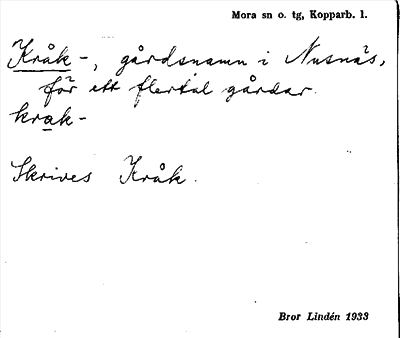 Mora sn o. tg, Kopparb. l.
Kråk-, gårdsnamn i Nusnäs,
för ett flertal gårdar.
krak-
Skrives Kråk.
Bror Lindén 1933